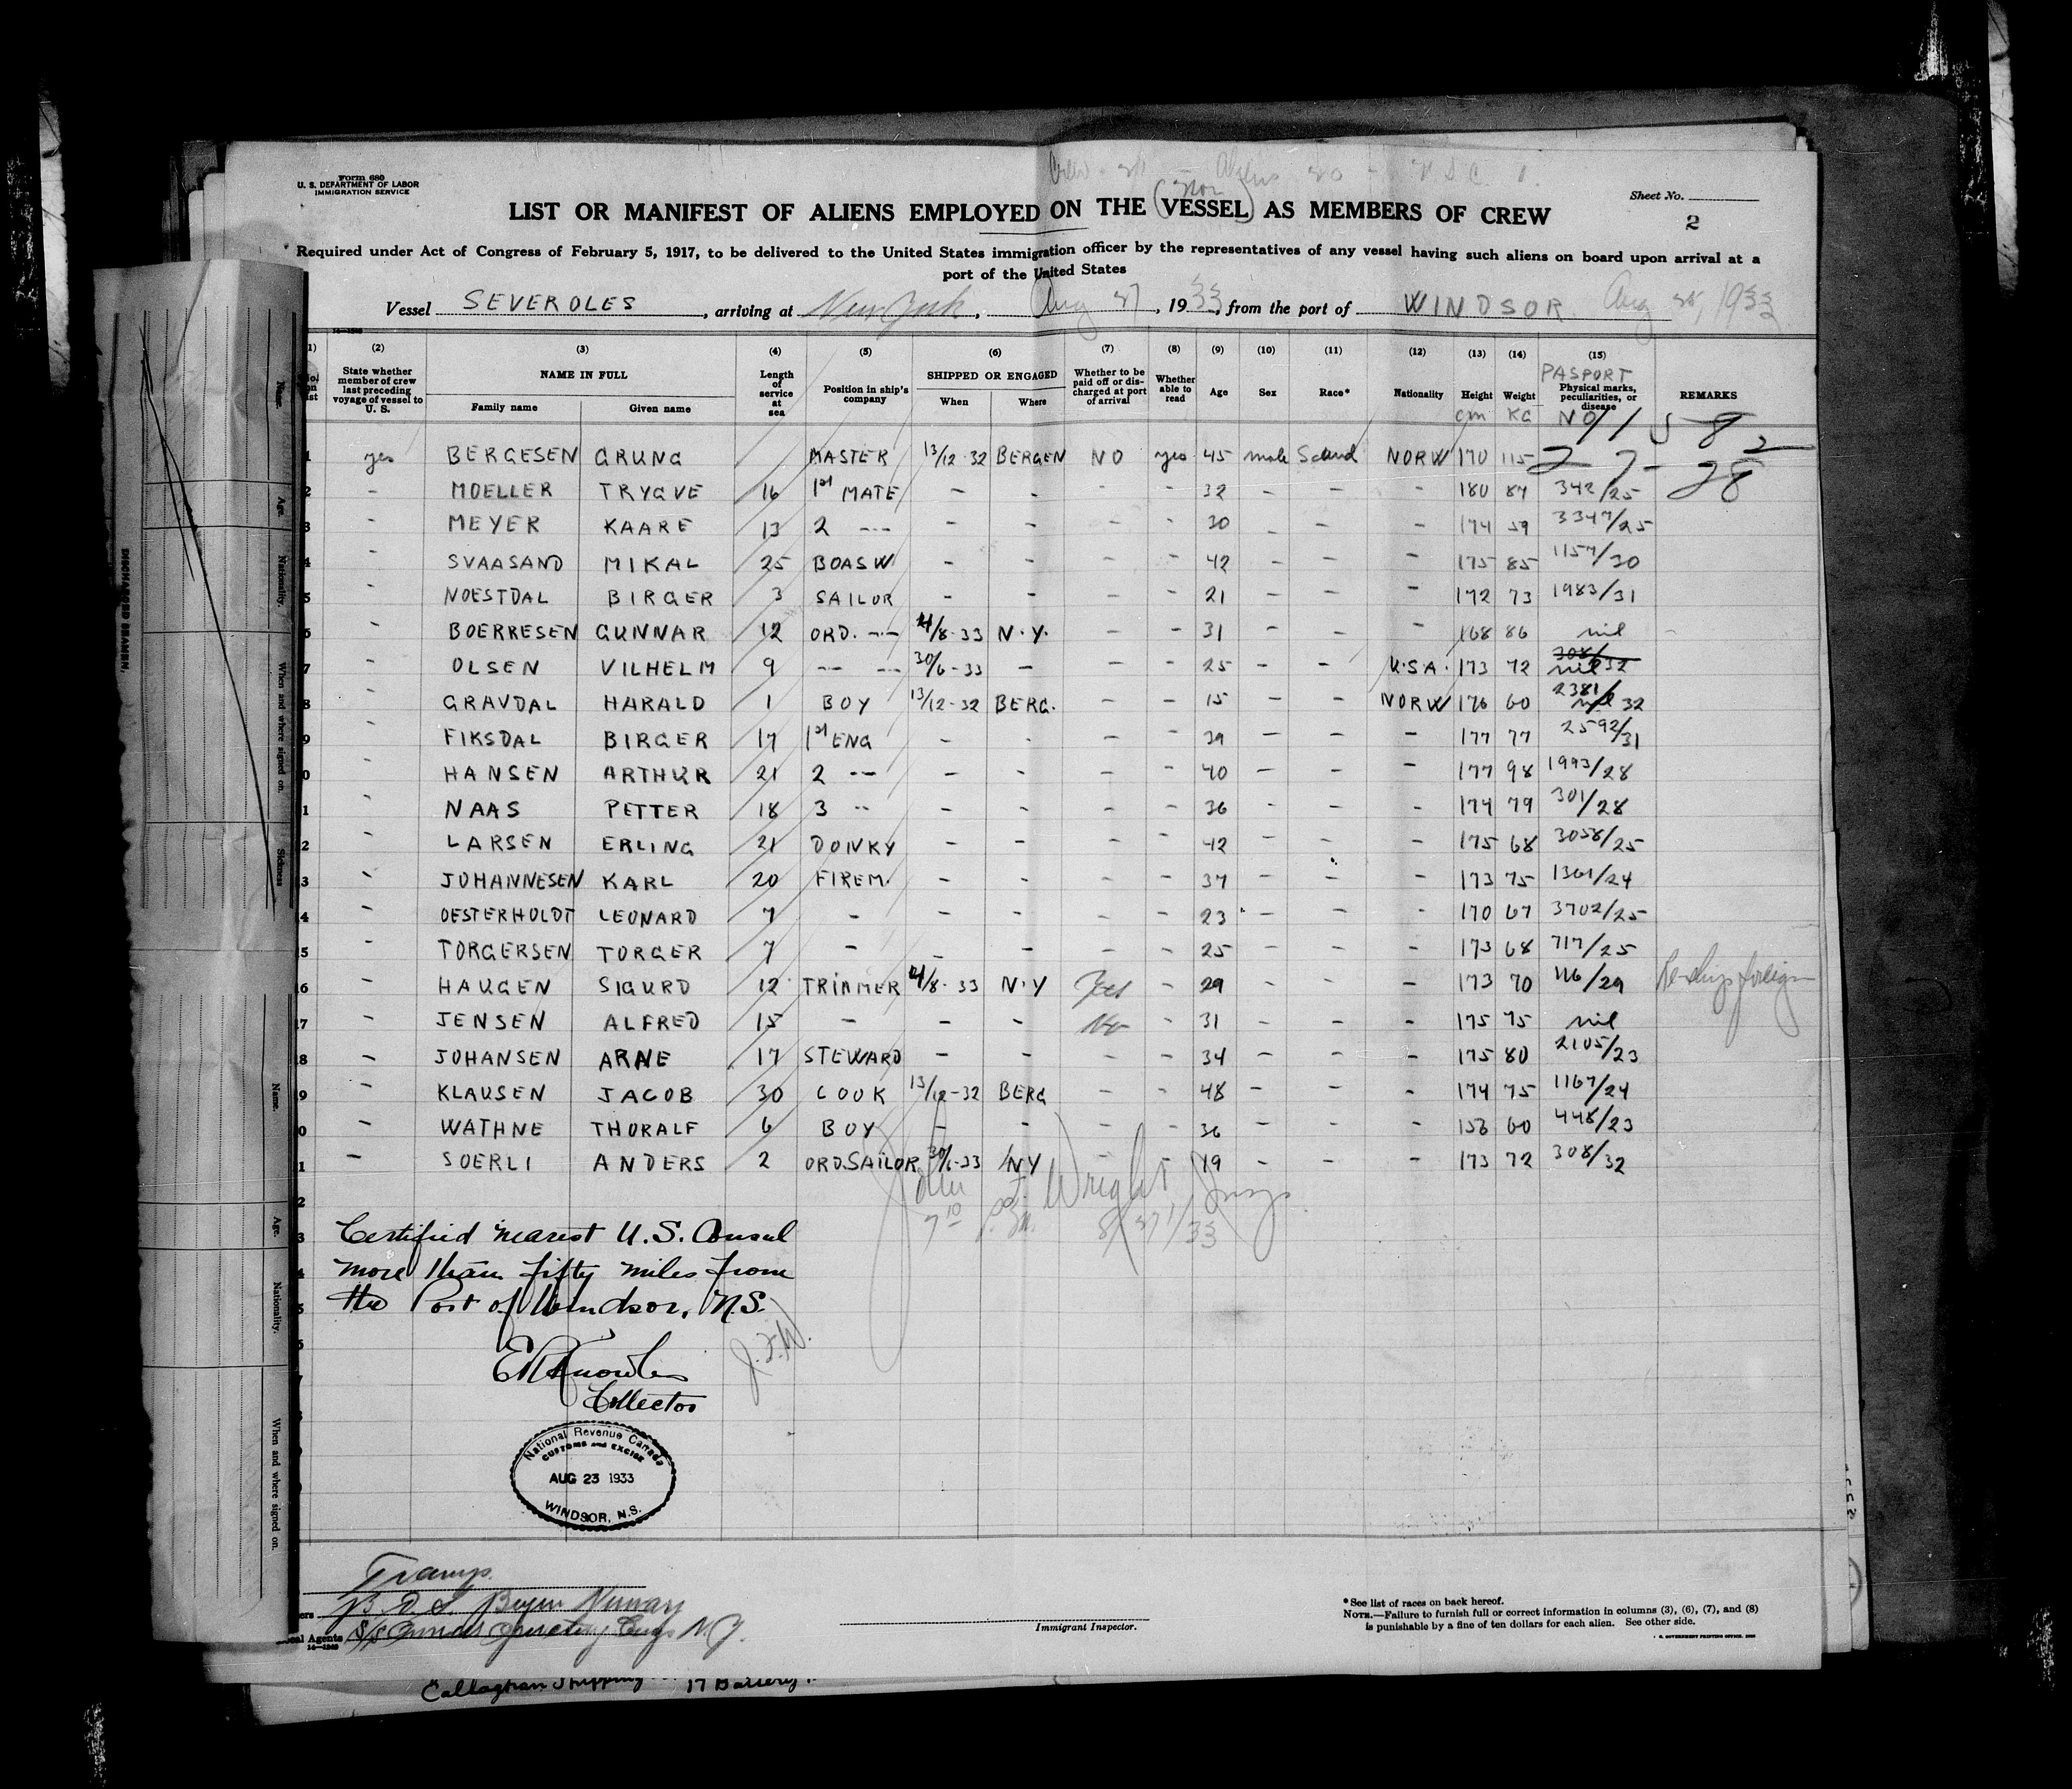 Form 680
U. S. DEPARTMENT OF LABOR
IMMIGRATION SERVICE
Sheet No.
2
LIST OR MANIFEST OF ALIENS EMPLOYED ON THE VESSEL AS MEMBERS OF CREW
Required under Act of Congress of February 5, 1917, to be delivered to the United States immigration officer by the representatives of any vessel having such aliens on board upon arrival at a
port of the United States
Vessel SEVEROLES, arriving at New York, Aug 27, 1933, from the port of WINDSOR Aug 1933
(1) (2) (3) (4) (5) (6) (7) (8) (9) (10) (11) (12) (13) (14) (15)
State whether member of crew last preceding voyage of vessel to U. S. NAME IN FULL Family name Given name Length of service at sea Position in ship's company SHIPPED OR ENGAGED When Where Whether to be paid off or discharged at port of arrival Whether able to read Age Sex Race* Nationality Height cm Weight KG PASPORT Physical marks, peculiarities, or disease NO REMARKS
1 yes BERGESEN GRUNG MASTER 13/12-32 BERGEN NO yes 45 male Scand NORW 170 115
2 - MOELLER TRYGVE 16 1st MATE - - - - 32 - - - 180 87 342/25
3 - MEYER KAARE 13 2 --- - - - - 30 - - - 174 59 3347/25
4 - SVAASAND MIKAL 25 BOASW - - - - 42 - - - 175 85 1157/30
5 - NOESTDAL BIRGER 3 SAILOR - - - - 21 - - - 172 73 1983/31
6 - BOERRESEN GUNNAR 12 ORD. -- 4/8-33 N.Y. - - 31 - - - 168 86 nil
7 - OLSEN VILHELM 9 -- -- 30/6-33 - - - 25 - - U.S.A. 173 72 308/32 nil
8 - GRAVDAL HARALD 1 BOY 13/12-32 BERG. - - 15 - - NORW 176 60 2381/32
9 - FIKSDAL BIRGER 17 1st ENG - - - - 39 - - - 177 77 2592/31
10 - HANSEN ARTHUR 21 2 -- - - - - 40 - - - 177 98 1993/28
11 - NAAS PETTER 18 3 -- - - - - 36 - - - 174 79 301/28
12 - LARSEN ERLING 21 DONKY - - - - 42 - - - 175 68 3058/25
13 - JOHANNESEN KARL 20 FIREM. - - - - 37 - - - 173 75 1361/24
14 - OESTERHOLDT LEONARD 7 - - - - - 23 - - - 170 67 3702/25
15 - TORGERSEN TORGER 7 - - - - - 25 - - - 173 68 717/25
16 - HAUGEN SIGURD 12 TRIMMER 4/8-33 N.Y Yes - 29 - - - 173 70 116/29 Re-ships foreign
17 - JENSEN ALFRED 15 - - - No - 31 - - - 175 75 nil
18 - JOHANSEN ARNE 17 STEWARD - - - - 34 - - - 175 80 2105/23
19 - KLAUSEN JACOB 30 COOK 13/12-32 BERG - - 48 - - - 174 75 1167/24
20 - WATHNE THORALF 6 BOY - - - - 36 - - - 153 60 448/23
21 - SOERLI ANDERS 2 ORD.SAILOR 30/6-33 NY - - 19 - - - 173 72 308/32
John Wright Insp.
8/27/33
Certified nearest U.S. Consul
more than fifty miles from
the Port of Windsor, N.S.
E Knowles
Collector
J.F.W.
National Revenue Canada
CUSTOMS and EXCISE
AUG 23 1933
WINDSOR, N.S.
Tramp
B.D.S. Bergen Norway
Local Agents
14-1240
Immigrant Inspector.
*See list of races on back hereof.
NOTE.—Failure to furnish full or correct information in columns (3), (6), (7), and (8)
is punishable by a fine of ten dollars for each alien. See other side.
Callaghan Shipping 17 Battery
DISCHARGED SEAMEN.
Name.
Age.
Nationality.
When and where signed on.
Sickness
Name.
Age.
Nationality.
When and where signed on.